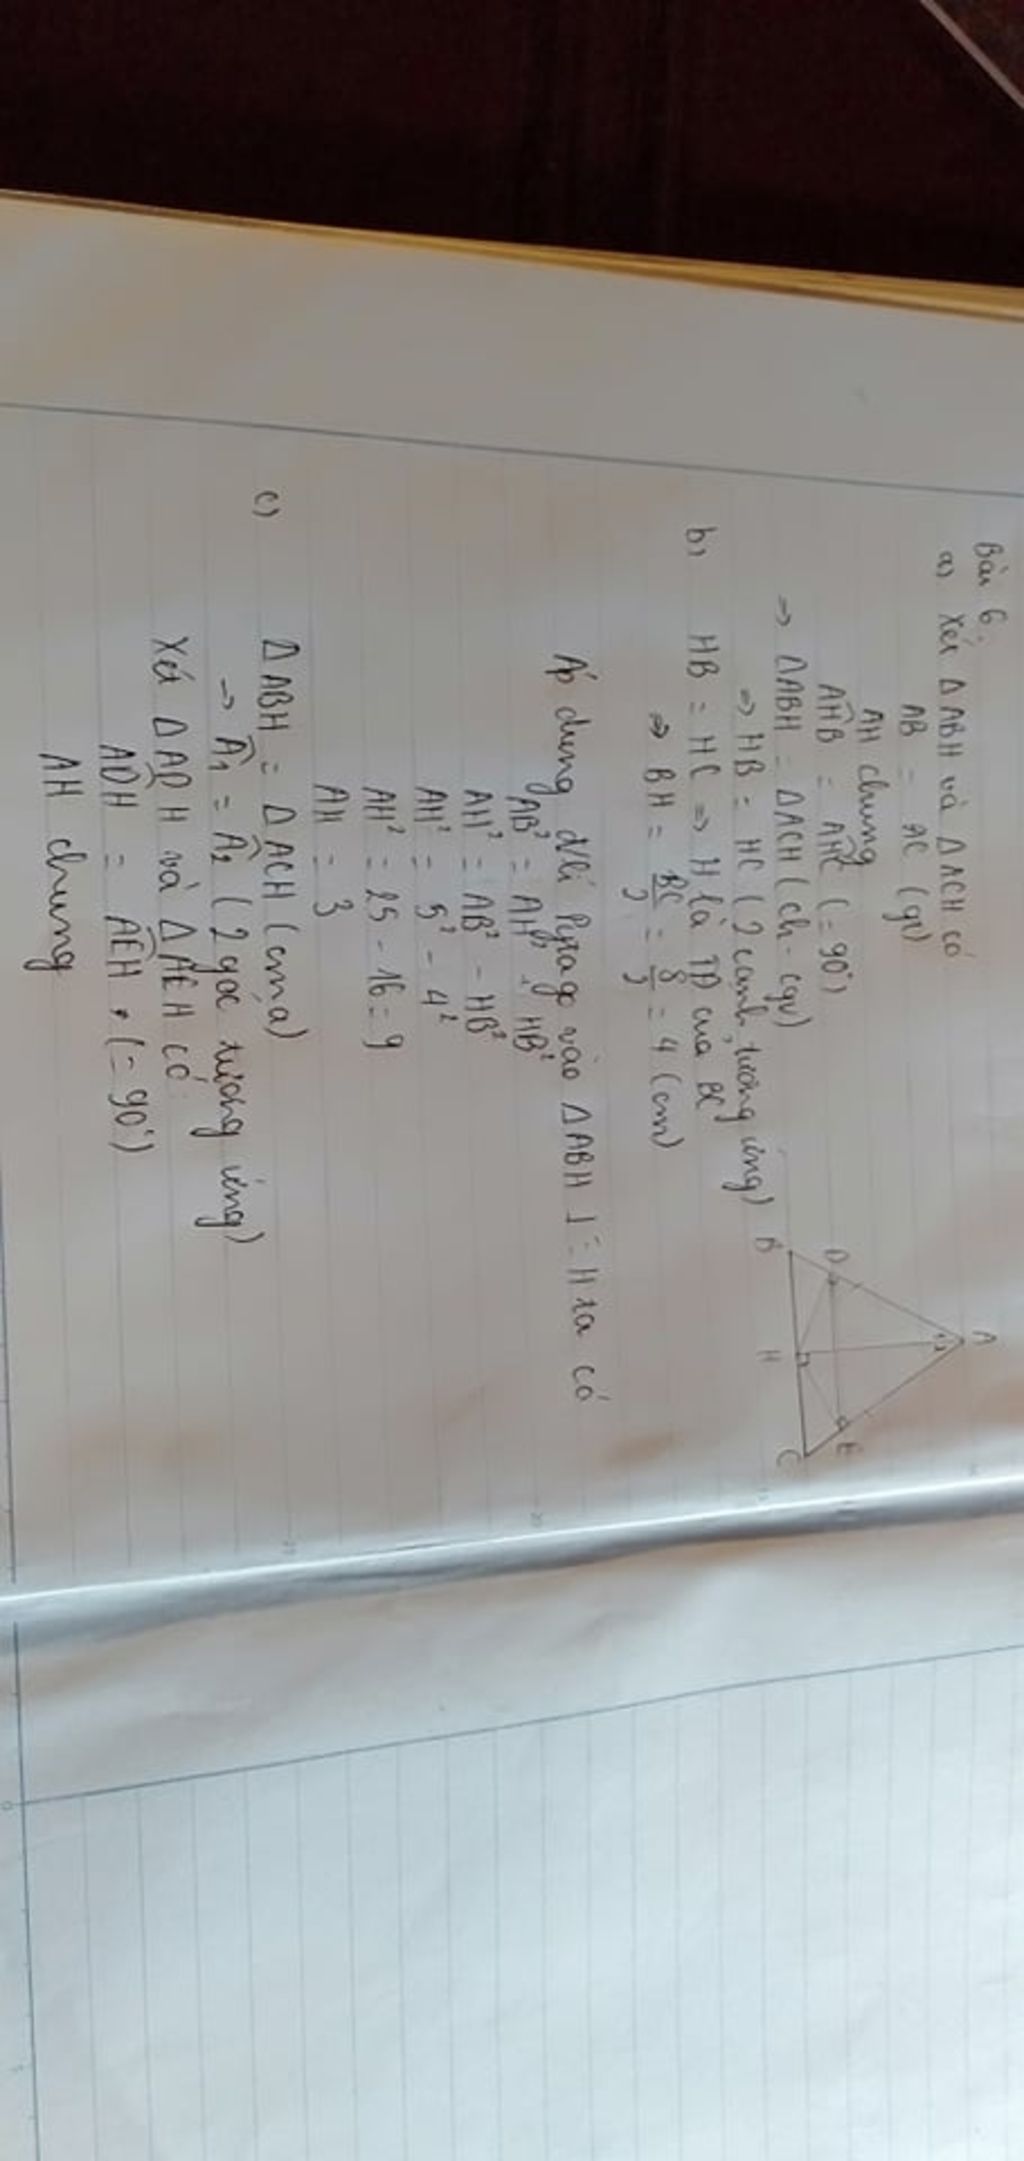 Bài 6.
a) Xét ΔABH và ΔACH có
AB = AC (gt)
AH chung
AHB = AHC (= 90°)
⇒ ΔABH = ΔACH (ch - cgv)
⇒ HB = HC (2 cạnh tương ứng)
b) HB = HC ⇒ H là TĐ của BC
⇒ BH = BC/2 = 8/2 = 4 (cm)
Áp dụng đlí Pytago vào ΔABH ⊥ H ta có
AB² = AH² + HB²
AH² = AB² - HB²
AH² = 5² - 4²
AH² = 25 - 16 = 9
AH = 3
c) ΔABH = ΔACH (cm a)
→ A₁ = A₂ (2 góc tương ứng)
Xét ΔADH và ΔAEH có
ADH = AEH (= 90°)
AH chung
A
D
E
B
H
C